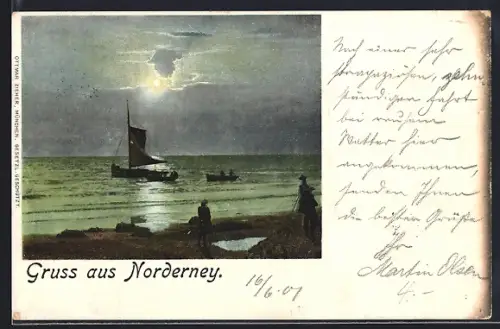 OTTMAR ZIEHER, MÜNCHEN. GESETZL. GESCHÜTZT.
Gruss aus Norderney.
16/6.01
Nach einer sehr
strapaziösen, zehn
stündigen Fahrt
bei
Wetter hier
angekommen,
senden Ihnen
die besten Grüße
Ihr
Martin Olsen